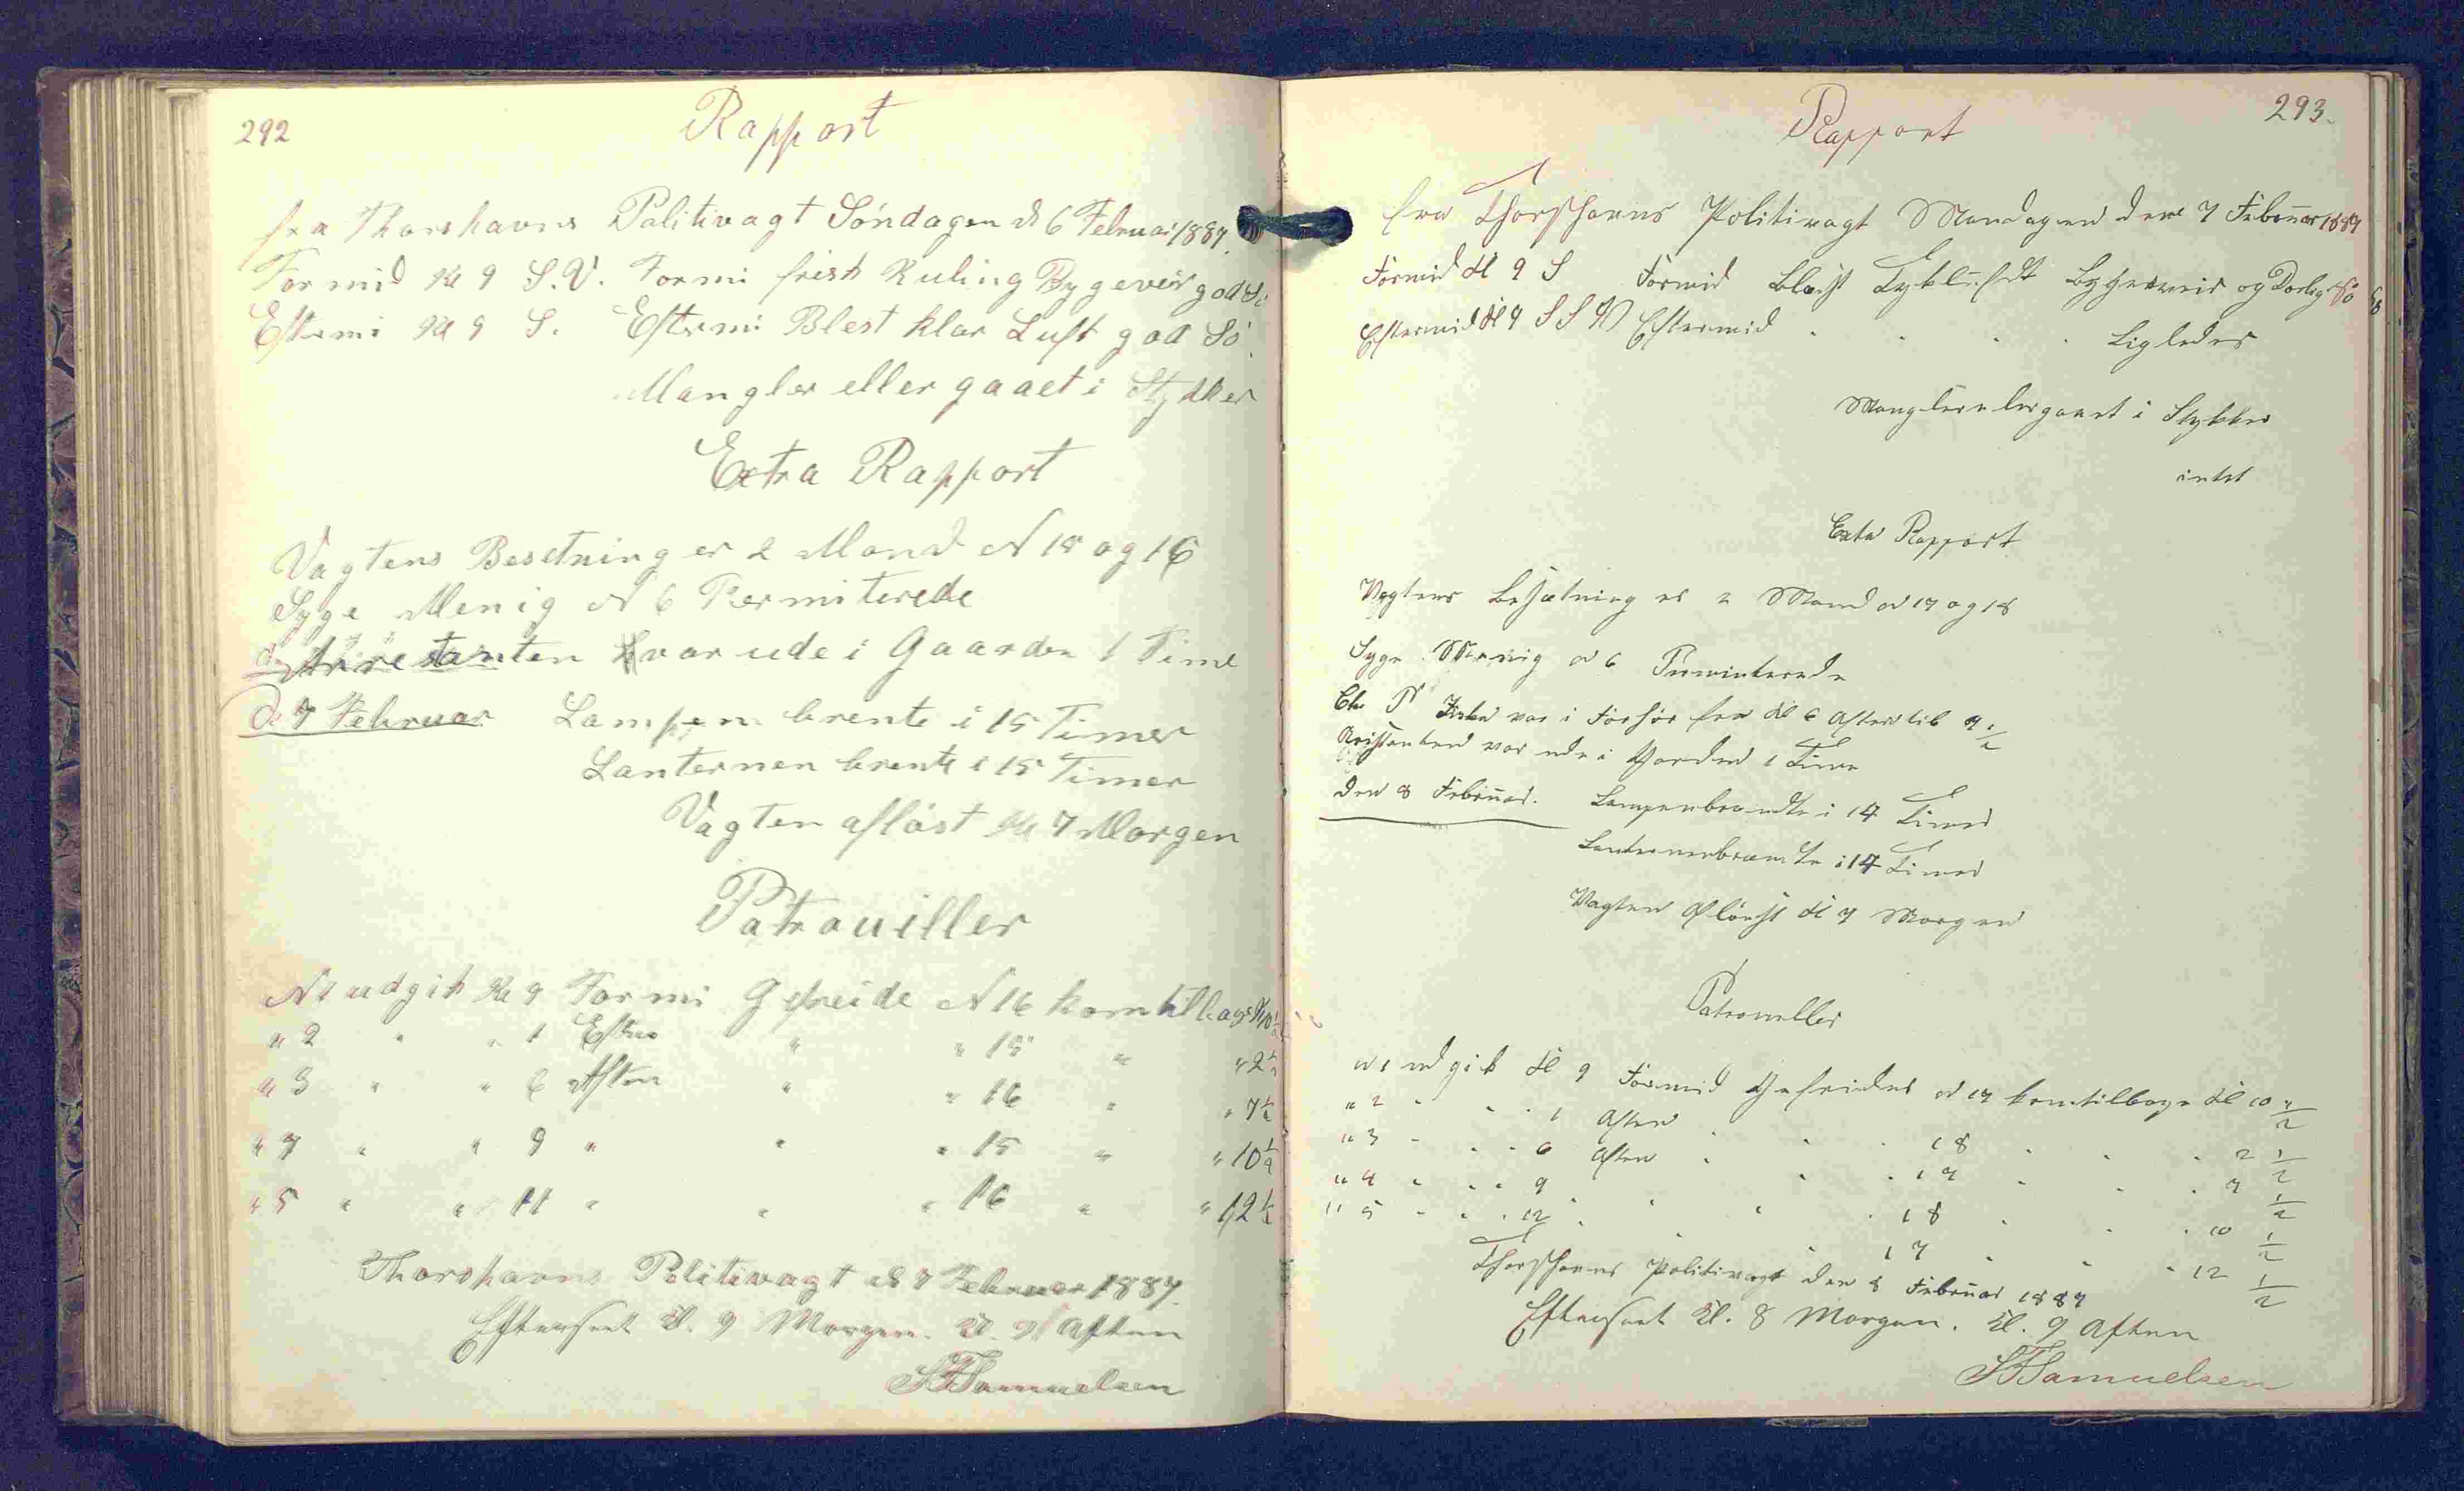 292
Rapport
fra Thorshavns Politivagt Söndagen d 6 Februar 1887.
Formid Kl 9 S.V. Formi frisk Kuling Bygeveir god Sö
Eftermi Kl 9 S. Eftermi Blest klar Luft god Sö.
Mangler eller gaaet i Stykker
Extra Rapport
Vagtens Besetning er 2 Mand N 15 og 16
Syge Menig N 6 Permiterede
Arrestanten var ude i Gaarden 1 Time
d. 7 Februar Lampen brente i 15 Timer
Lanternen brente i 15 Timer
Vagten aflöst Kl 7 Morgen
Patrouiller
N 1 udgik Kl 9 Formi Gefreide N 16 kom tilbage Kl 10 1/2
" 2 " " 1 Efter " " 15 " " 2 1/2
" 3 " " 6 Aften " " 16 " " 7 1/2
" 4 " " 9 " " " 15 " " 10 1/2
" 5 " " 11 " " " 16 " " 12 1/2
Thorshavns Politivagt d 7 Februar 1887.
Efterseet Kl. 9 Morgen. Kl. 9 Aften
Samuelsen
293.
Rapport
fra Thorshavns Politivagt Mandagen den 7 Februar 1887
Formid Kl 9 S Formid Blæst Tyk Luft Bygeveir og Daarlig Sö
Eftermid Kl 9 S S W Eftermid . . . . Ligledes
Mangler eler gaaet i Stykker
intet
Exta Rapport
Vagtens Besætning er 2 Mand N 17 og 18
Syge Menig N 6 Permiterede
var i Forhör fra Kl 6 Aften til 9 1/2
Aristanten var ude i Gorden 1 Time
den 8 Februar. Lampen brændte i 14 Timer
Lanternen brændte i 14 Timer
Vagten Aflöst Kl 7 Morgen
Patrouller
N 1 udgik Kl 9 Formid Gefreider N 17 kom tilbage Kl 10 1/2
" 2 " " 1 Aften " " 18 " " 2 1/2
" 3 " " 6 Aften " " 17 " " 7 1/2
" 4 " " 9 " " " 18 " " 10 1/2
" 5 " " 12 " " " 17 " " 12 1/2
Thorshavns Politivagt den 8 Februar 1887
Efterseet Kl. 8 Morgen. Kl. 9 Aften
Samuelsen